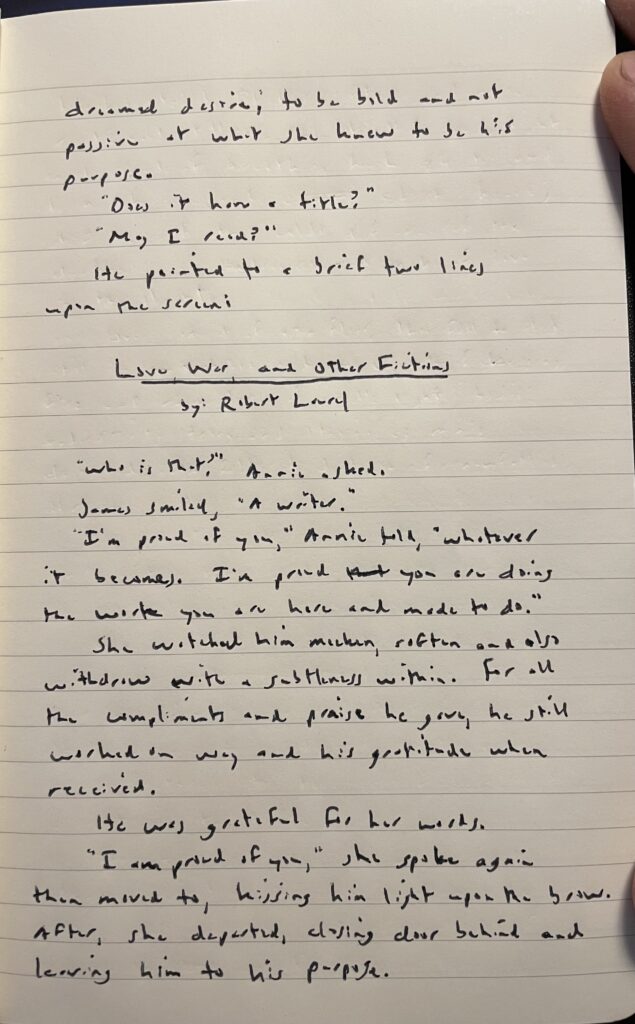 dreamed desire; to be bold and not
passive at what she knew to be his
purpose.
"Does it have a title?"
"May I read?"
He pointed to a brief two lines
upon the screen:
Love, War, and Other Fictions
by: Robert Laurel
"Who is that?" Annie asked.
James smiled, "A writer."
"I'm proud of you," Annie told, "whatever
it becomes. I'm proud that you are doing
the work you are here and made to do."
She watched him meeken, soften and also
withdraw with a subtleness within. For all
the compliments and praise he gave, he still
worked on way and his gratitude when
received.
He was grateful for her words.
"I am proud of you," she spoke again
then moved to, kissing him light upon the brow.
After, she departed, closing door behind and
leaving him to his purpose.